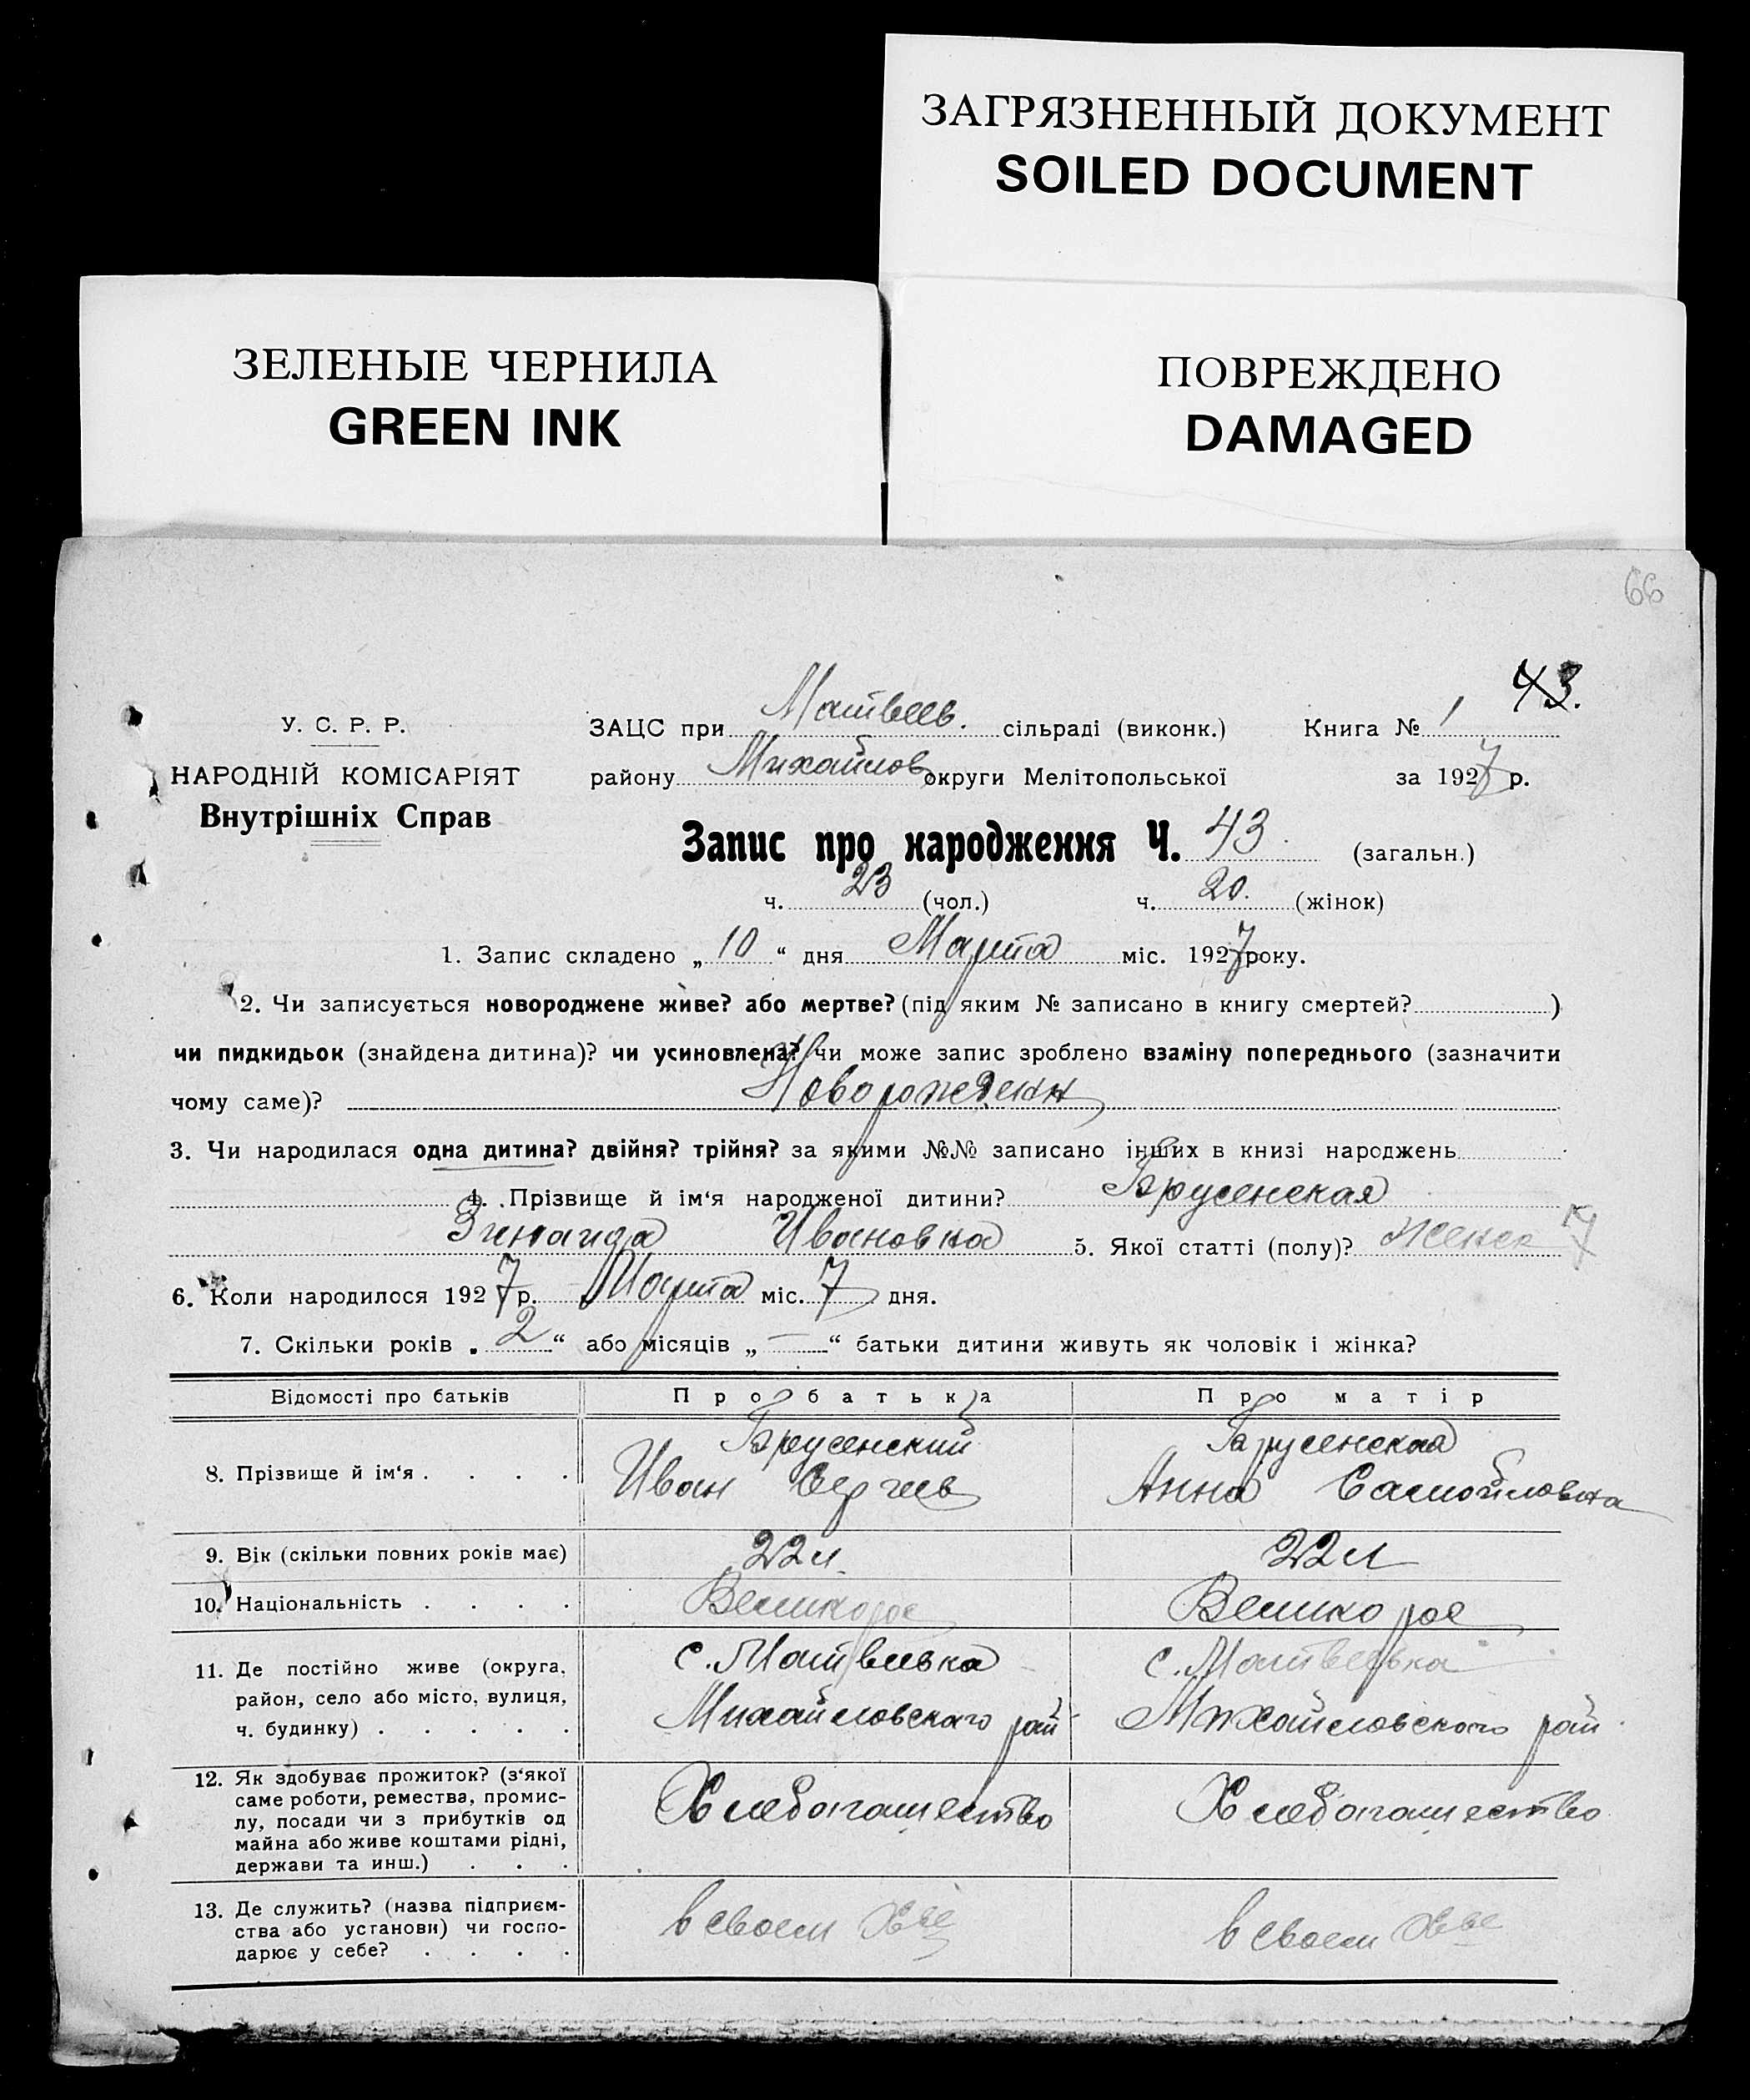 ЗАГРЯЗНЕННЫЙ ДОКУМЕНТ
SOILED DOCUMENT
ЗЕЛЕНЫЕ ЧЕРНИЛА
GREEN INK
ПОВРЕЖДЕНО
DAMAGED
66
43.
У. С. Р. Р.
НАРОДНІЙ КОМІСАРІЯТ
Внутрішніх Справ
ЗАЦС при Матвеев. сільраді (виконк.) Книга № 1
району Михайлов округи Мелітопольської за 1927 р.
Запис про народження Ч. 43. (загальн.)
ч. 23 (чол.) ч. 20. (жінок)
1. Запис складено „ 10 “ дня Марта міс. 1927 року.
2. Чи записується новороджене живе? або мертве? (під яким № записано в книгу смертей? )
чи пидкидьок (знайдена дитина)? чи усиновлена? чи може запис зроблено взаміну попереднього (зазначити
чому саме)? Новорожденн
3. Чи народилася одна дитина? двійня? трійня? за якими №№ записано інших в книзі народжень
4. Прізвище й ім‘я народженої дитини?
Зинаида Ивановна 5. Якої статті (полу)? женск
6. Коли народилося 1927 р. Марта міс. 7 дня.
7. Скільки років „ 2 “ або місяців „ — “ батьки дитини живуть як чоловік і жінка?
Відомості про батьків Про батька Про матір
8. Прізвище й ім‘я . . . .
Иван Сергеев
Анна Самойловна
9. Вік (скільки повних років має) 22 л. 22 л
10. Національність . . . . Великорос Великорос
11. Де постійно живе (округа, район, село або місто, вулиця, ч. будинку) . . . . .
с. Матвеевка
Михайловского рай
с. Матвеевка
Михайловского рай
12. Як здобуває прожиток? (з‘якої саме роботи, ремества, промис-
лу, посади чи з прибутків од
майна або живе коштами рідні,
держави та инш.) . . .
Хлебопашество Хлебопашество
13. Де служить? (назва підприєм-
ства або установи) чи госпо-
дарює у себе? . . . .
в своем хве
в своем хве